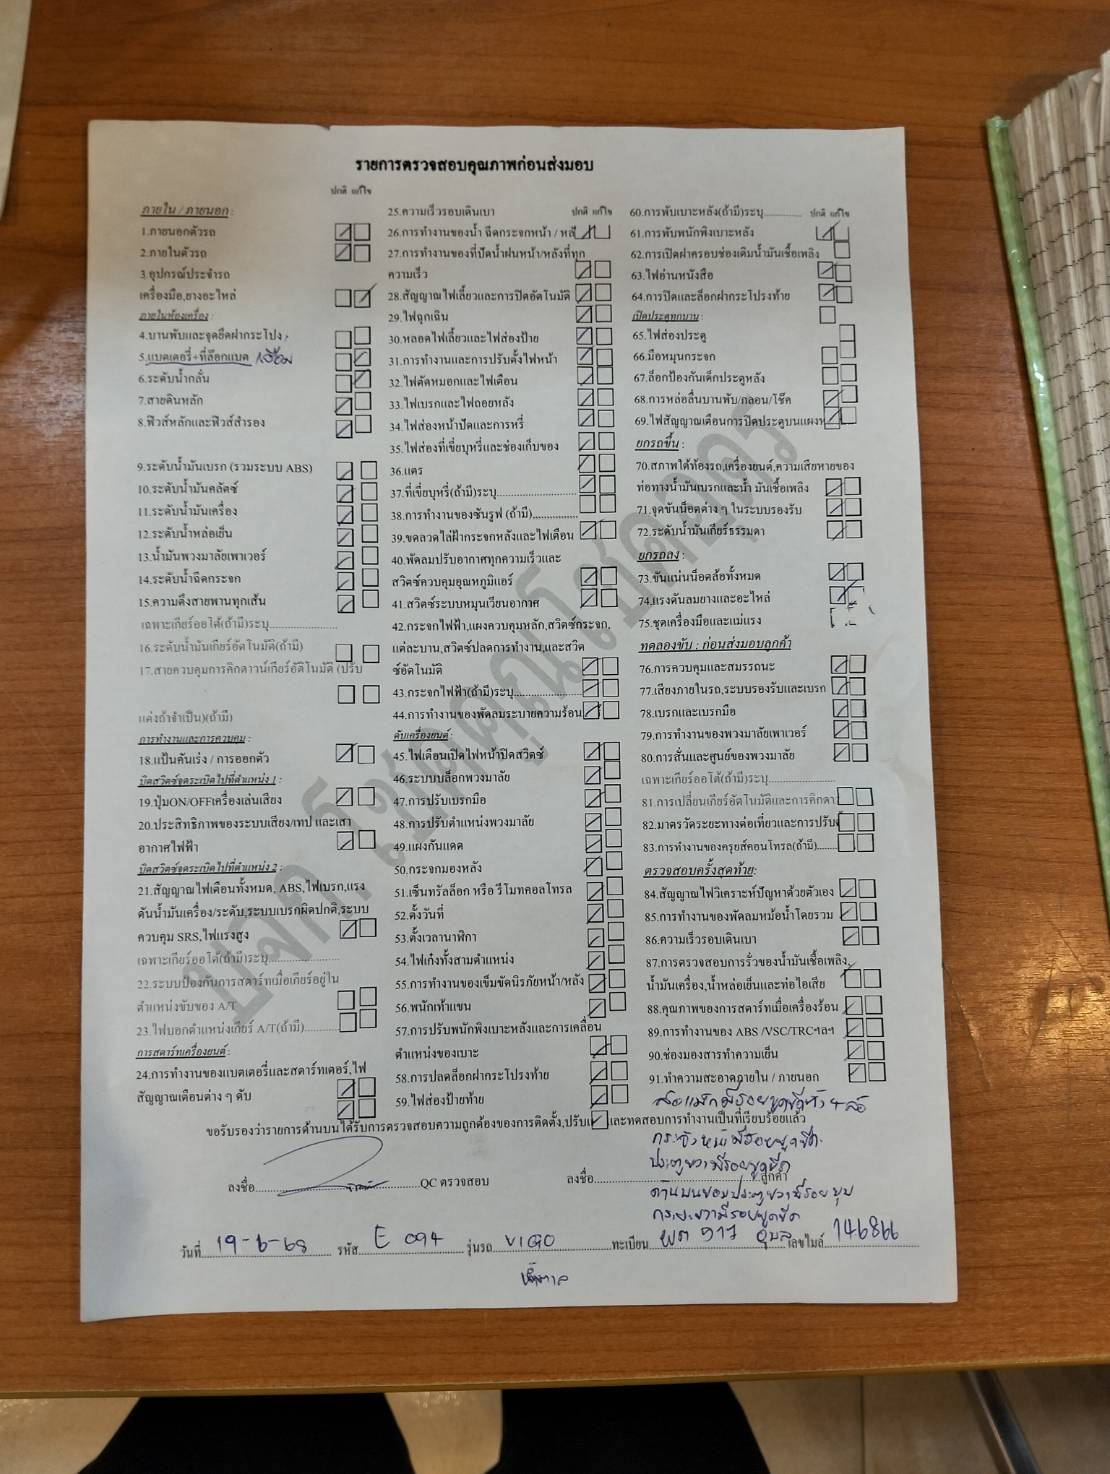 รายการตรวจสอบคุณภาพก่อนส่งมอบ
ปกติ แก้ไข
ภายใน / ภายนอก :
1.ภายนอกตัวรถ
2.ภายในตัวรถ
3.อุปกรณ์ประจำรถ
เครื่องมือ,ยางอะไหล่
ภายในห้องเครื่อง :
4.บานพับและจุดยึดฝากระโปง
5.แบตเตอรี่+ที่ล็อกแบต เสื่อม
6.ระดับน้ำกลั่น
7.สายดินหลัก
8.ฟิวส์หลักและฟิวส์สำรอง
9.ระดับน้ำมันเบรก (รวมระบบ ABS)
10.ระดับน้ำมันคลัตช์
11.ระดับน้ำมันเครื่อง
12.ระดับน้ำหล่อเย็น
13.น้ำมันพวงมาลัยเพาเวอร์
14.ระดับน้ำฉีดกระจก
15.ความตึงสายพานทุกเส้น
เฉพาะเกียร์ออโต้(ถ้ามี)ระบุ
16.ระดับน้ำมันเกียร์อัตโนมัติ(ถ้ามี)
17.สายควบคุมการคิกดาวน์เกียร์อัติโนมัติ (ปรับ
แต่งถ้าจำเป็น)(ถ้ามี)
การทำงานและการควบคุม :
18.แป้นคันเร่ง / การออกตัว
บิดสวิตช์จุดระเบิดไปที่ตำแหน่ง 1 :
19.ปุ่มON/OFFเครื่องเล่นเสียง
20.ประสิทธิภาพของระบบเสียง/เทป และเสา
อากาศไฟฟ้า
บิดสวิตช์จุดระเบิดไปที่ตำแหน่ง 2 :
21.สัญญาณไฟเตือนทั้งหมด, ABS,ไฟเบรก,แรง
ดันน้ำมันเครื่อง/ระดับ,ระบบเบรกผิดปกติ,ระบบ
ควบคุม SRS,ไฟแรงสูง
เฉพาะเกียร์ออโต้(ถ้ามี)ระบุ
22.ระบบป้องกันการสตาร์ทเมื่อเกียร์อยู่ใน
ตำแหน่งขับของ A/T
23.ไฟบอกตำแหน่งเกียร์ A/T(ถ้ามี)
การสตาร์ทเครื่องยนต์ :
24.การทำงานของแบตเตอรี่และสตาร์ทเตอร์,ไฟ
สัญญาณเตือนต่าง ๆ ดับ
25.ความเร็วรอบเดินเบา ปกติ แก้ไข
26.การทำงานของน้ำ ฉีดกระจกหน้า / หลัง
27.การทำงานของที่ปัดน้ำฝนหน้า/หลังที่ทุก
ความเร็ว
28.สัญญาณไฟเลี้ยวและการปิดอัตโนมัติ
29.ไฟฉุกเฉิน
30.หลอดไฟเลี้ยวและไฟส่องป้าย
31.การทำงานและการปรับตั้งไฟหน้า
32.ไฟตัดหมอกและไฟเตือน
33.ไฟเบรกและไฟถอยหลัง
34.ไฟส่องหน้าปัดและการหรี่
35.ไฟส่องที่เขี่ยบุหรี่และช่องเก็บของ
36.แตร
37.ที่เขี่ยบุหรี่(ถ้ามี)ระบุ
38.การทำงานของซันรูฟ (ถ้ามี)
39.ขดลวดไล่ฝ้ากระจกหลังและไฟเตือน
40.พัดลมปรับอากาศทุกความเร็วและ
สวิตช์ควบคุมอุณหภูมิแอร์
41.สวิตช์ระบบหมุนเวียนอากาศ
42.กระจกไฟฟ้า,แผงควบคุมหลัก,สวิตช์กระจก,
แต่ละบาน,สวิตช์ปลดการทำงาน,และสวิต
ช์อัตโนมัติ
43.กระจกไฟฟ้า(ถ้ามี)ระบุ
44.การทำงานของพัดลมระบายความร้อน
ดับเครื่องยนต์ :
45.ไฟเตือนเปิดไฟหน้าปิดสวิตช์
46.ระบบบล็อกพวงมาลัย
47.การปรับเบรกมือ
48.การปรับตำแหน่งพวงมาลัย
49.แผงกันแดด
50.กระจกมองหลัง
51.เซ็นทรัลล็อก หรือ รีโมทคอลโทรล
52.ตั้งวันที่
53.ตั้งเวลานาฬิกา
54.ไฟเก๋งทั้งสามตำแหน่ง
55.การทำงานของเข็มขัดนิรภัยหน้า/หลัง
56.พนักเท้าแขน
57.การปรับพนักพิงเบาะหลังและการเคลื่อน
ตำแหน่งของเบาะ
58.การปลดล็อกฝากระโปรงท้าย
59.ไฟส่องป้ายท้าย
60.การพับเบาะหลัง(ถ้ามี)ระบุ ปกติ แก้ไข
61.การพับพนักพิงเบาะหลัง
62.การเปิดฝาครอบช่องเติมน้ำมันเชื้อเพลิง
63.ไฟอ่านหนังสือ
64.การปิดและล็อกฝากระโปรงท้าย
เปิดประตูทุกบาน :
65.ไฟส่องประตู
66.มือหมุนกระจก
67.ล็อกป้องกันเด็กประตูหลัง
68.การหล่อลื่นบานพับ/กลอน/โช๊ค
69.ไฟสัญญาณเตือนการปิดประตูบนแผงห
ยกรถขึ้น :
70.สภาพใต้ท้องรถ,เครื่องยนต์,ความเสียหายของ
ท่อทางน้ำมันเบรกและน้ำ มันเชื้อเพลิง
71.จุดขันน็อตต่าง ๆ ในระบบรองรับ
72.ระดับน้ำมันเกียร์ธรรมดา
ยกรถลง :
73.ขันแน่นน็อตล้อทั้งหมด
74.แรงดันลมยางและอะไหล่
75.ชุดเครื่องมือและแม่แรง
ทดลองขับ : ก่อนส่งมอบลูกค้า
76.การควบคุมและสมรรถนะ
77.เสียงภายในรถ,ระบบรองรับและเบรก
78.เบรกและเบรกมือ
79.การทำงานของพวงมาลัยเพาเวอร์
80.การสั่นและศูนย์ของพวงมาลัย
เฉพาะเกียร์ออโต้(ถ้ามี)ระบุ
81.การเปลี่ยนเกียร์อัตโนมัติและการคิกดา
82.มาตรวัดระยะทางต่อเที่ยวและการปรับ
83.การทำงานของครุยส์คอนโทรล(ถ้ามี)
ตรวจสอบครั้งสุดท้าย:
84.สัญญาณไฟวิเคราะห์ปัญหาด้วยตัวเอง
85.การทำงานของพัดลมหม้อน้ำโดยรวม
86.ความเร็วรอบเดินเบา
87.การตรวจสอบการรั่วของน้ำมันเชื้อเพลิง,
น้ำมันเครื่อง,น้ำหล่อเย็นและท่อไอเสีย
88.คุณภาพของการสตาร์ทเมื่อเครื่องร้อน
89.การทำงานของ ABS /VSC/TRCฯลฯ
90.ช่องมองสารทำความเย็น
91.ทำความสะอาดภายใน / ภายนอก
ล้อแม็กมีรอยขูดขีดทั้ง 4 ล้อ
ขอรับรองว่ารายการด้านบนได้รับการตรวจสอบความถูกต้องของการติดตั้ง,ปรับ และทดสอบการทำงานเป็นที่เรียบร้อยแล้ว
กระจังหน้ามีรอยขูดขีด
ประตูขวามีรอยขูดขีด
ลงชื่อ QC ตรวจสอบ ลงชื่อ ลูกค้า
ด้านบนขอบประตูขวามีรอยบุบ
กระบะขวามีรอยขูดขีด
วันที่ 19-6-68 รหัส E 094 รุ่นรถ VIGO ทะเบียน ผต 917 อุบล เลขไมล์ 146866
น้ำตาล
บจก.โชคคูณโชคยอดร